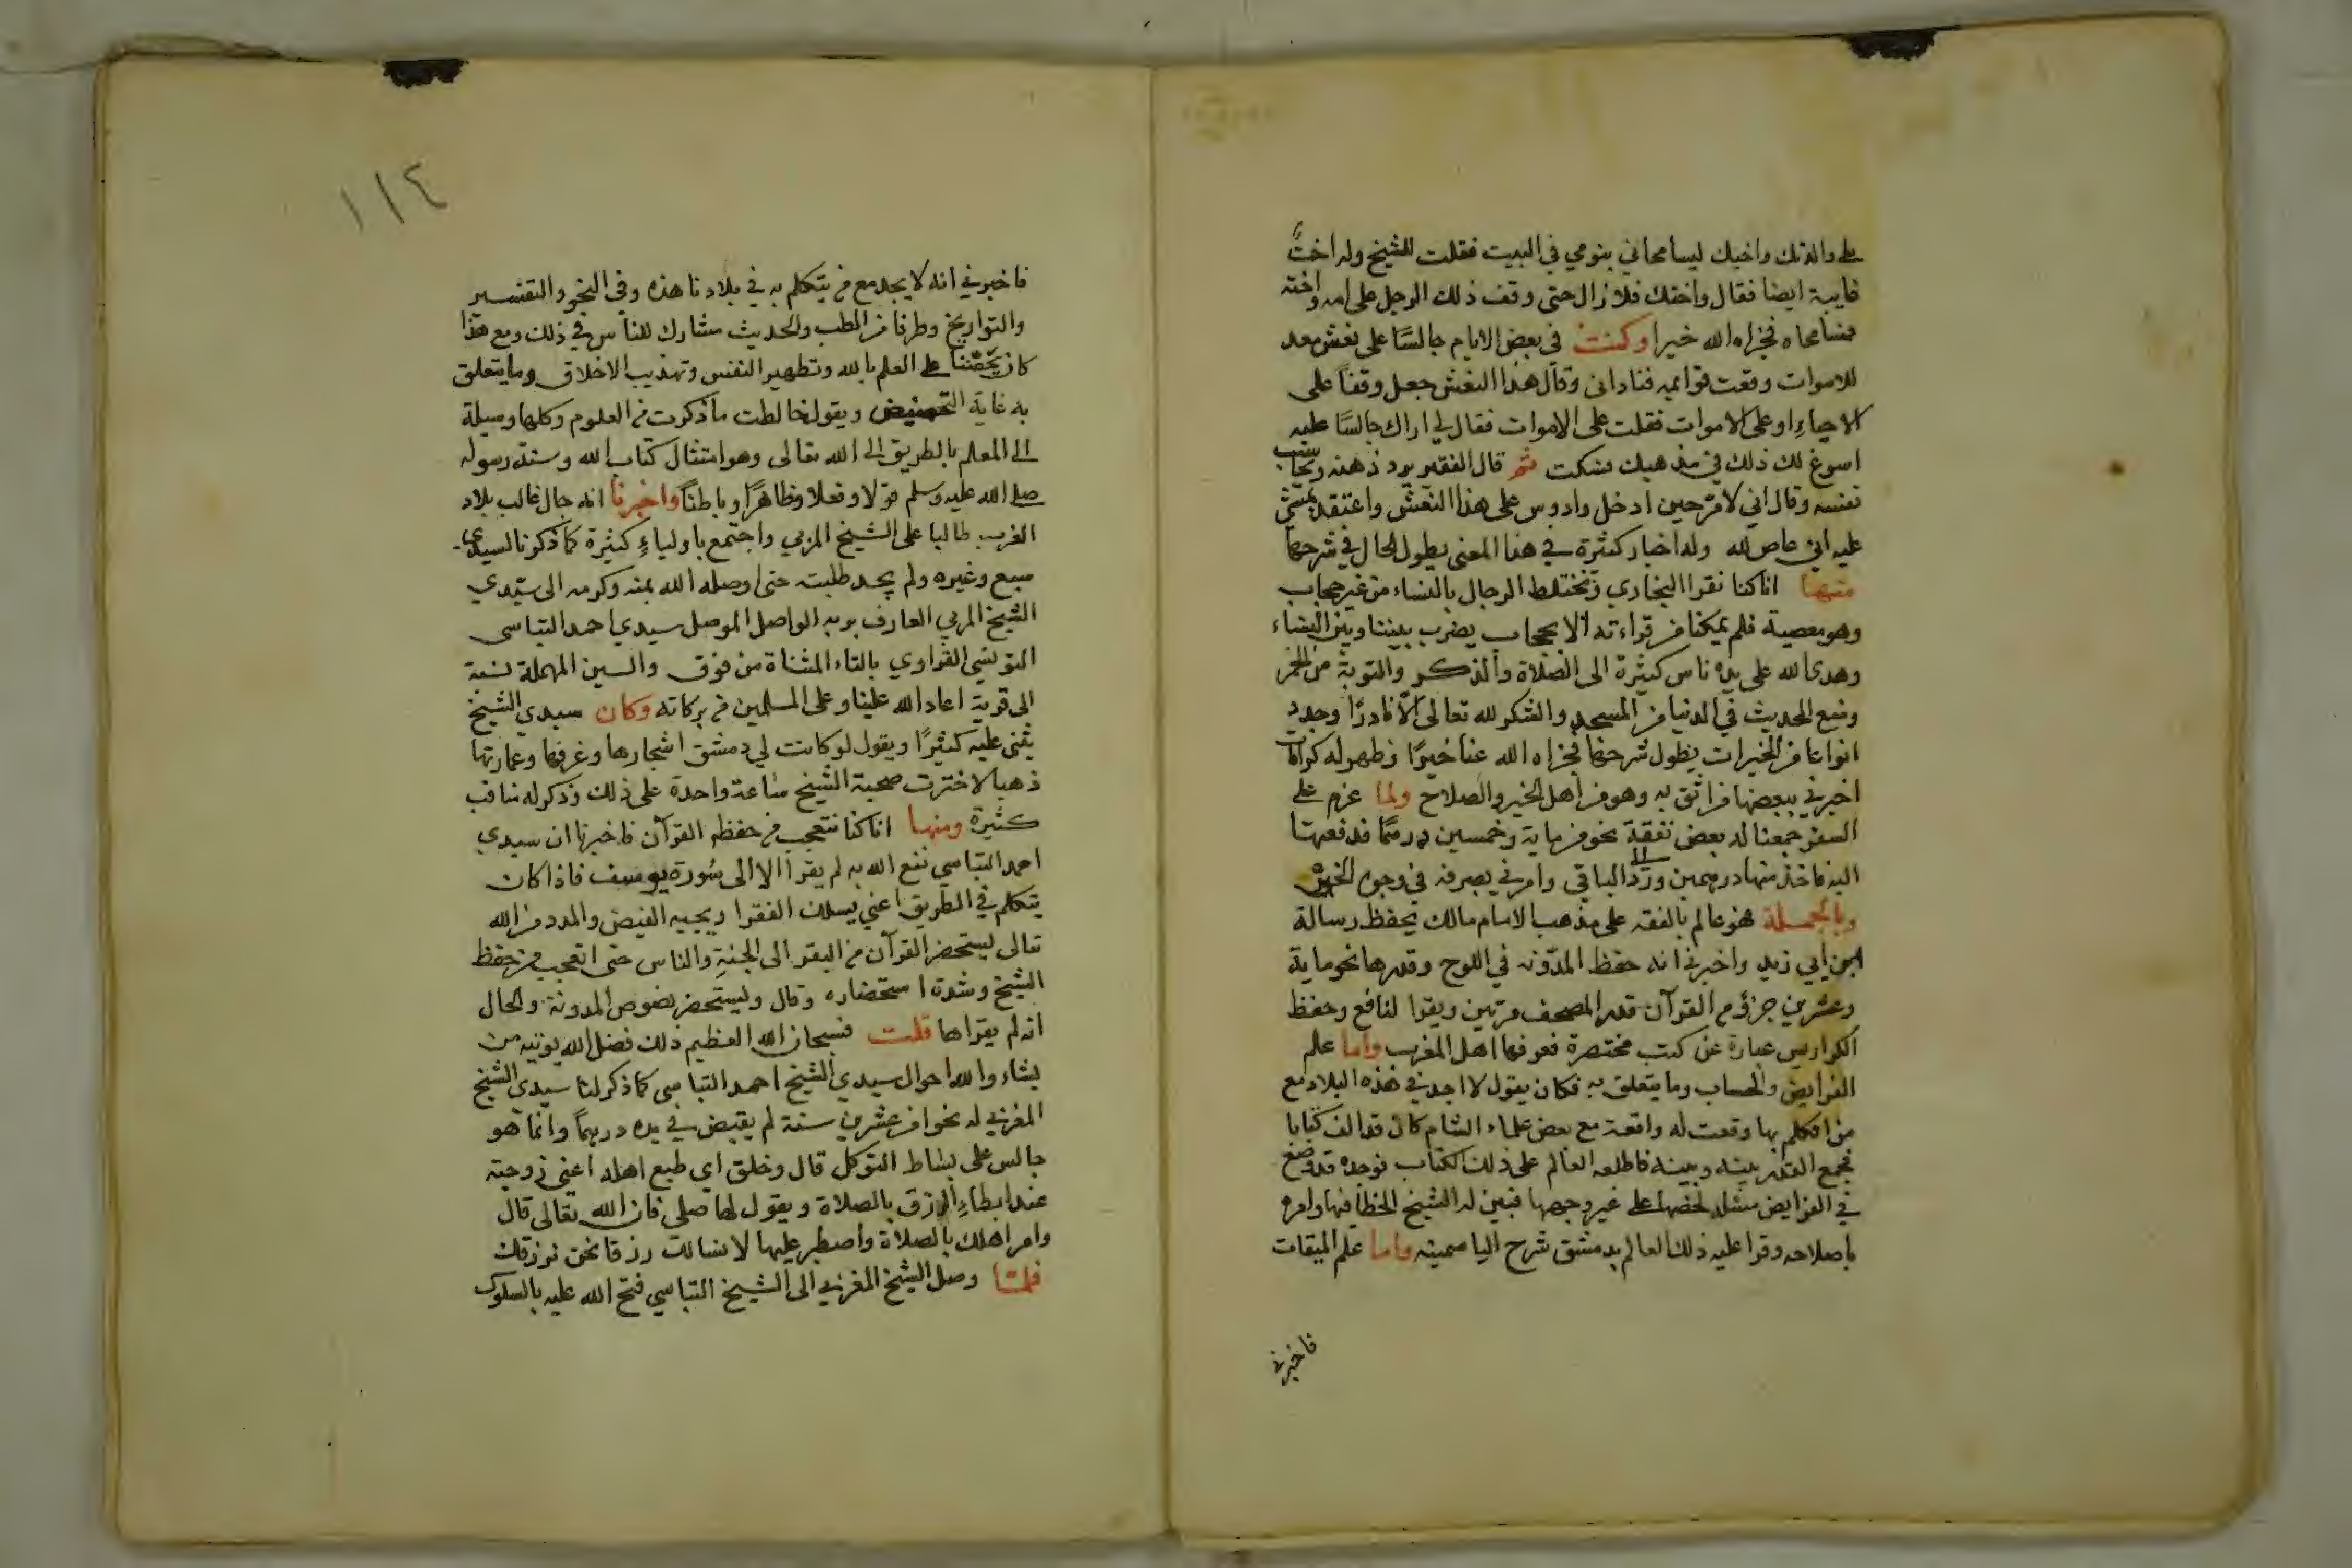 على والدتك واخيك ليسامحاني بنومي في البيت فقلت للشيخ وله اختٌ
غايبة ايضا فقال واختك فلا زال حتى وقف ذلك الرجل على امه واخته
فسامحاه فجزاه الله خيرا وكنت في بعض الايام جالسًا على نعش معد
للاموات وقعت قوايمه فناداني وقال هذا النعش جعل وقفاً على
الاحياءِ او على الاموات فقلت على الاموات فقال لي اراك جالسًا عليه
اسوغ لك ذلك في مذهبك فسكت ثم قال الفقير يرد ذهنه ويحاسب
نفسه وقال اني لامر حين ادخل وادوس على هذا النعش واعتقد بمشي
عليه اني عاص لله وله اخبار كثيرة في هذا المعنى يطول الحال في شرحها
منها انا كنا نقرا البخاري وتختلط الرجال بالنساء من غير حجاب
وهو معصية فلم يمكنا من قراءته الا بحجاب يضرب بيننا وبين النساء
وهدى الله على يده ناس كثيرة الى الصلاة والذكر والتوبة من الخمر
ومنع الحديث في الدنيا من المسجد والشكر لله تعالى الّا نادرًا وجدد
انواعا من الخيرات يطول شرحها فجزاه الله عنا خيرًا وظهر له كرامات
اخبرني ببعضها من اثق به وهو من اهل الخير والصلاح ولما عزم على
السفر جمعنا له بعض نفقة نحو من ماية وخمسين درهمًا فدفعتها
اليه فاخذ منها درهمين وردّ الباقي وامرني بصرفه في وجوه الخير
وبالجملة فهو عالم بالفقه على مذهب الامام مالك يحفظ رسالة
ابن ابي زيد واخبرني انه حفظ المدّونه في اللوح وقدرها نحو ماية
وعشرين جزؤ من القرآن قدر المصحف مرتين ويقرا لنافع وحفظ
الكراريس عبارة عن كتب مختصرة نعرفها اهل المغرب واما علم
الفرايض والحساب وما يتعلق به فكان يقول لا اجد في هذه البلاد مع
من اتكلم بها وقعت له واقعة مع بعض علماء الشام كان قد الف كتابا
فجمع القدر بينه وبينه فاطلعه العالم على ذلك الكتاب فوجده قد وضع
في الفرايض مسئلة لخصها على غير وجهها فبين له الشيخ الخطأ فيها وامره
باصلاحه وقرا عليه ذلك العالم بدمشق شرح الياسمينه واما علم الميقات
فاخبرني
١١٤
فاخبرني انه لا يجد مع من يتكلم به في بلادنا هذه وفي النحو والتفسير
والتواريخ وطرفا من الطب والحديث مشارك للناس في ذلك ومع هذا
كان يحضّنا على العلم بالله وتطهير النفس وتهذيب الاخلاق وما يتعلق
به غاية ويقول خالطت ما ذكرت من العلوم وكلها وسيلة
الى المعلم بالطريق الى الله تعالى وهو امتثال كتاب الله وسنة رسوله
صلى الله عليه وسلم قولا وفعلا وظاهرًا وباطناً واخبرنا انه جال غالب بلاد
الغرب طالبا على الشيخ المربي واجتمع باولياءِ كثيرة كما ذكرنا لسيدي
سبع وغيره ولم يجد طلبته حتى اوصله الله بمنه وكرمه الى سيّدي
الشيخ المربي العارف بربه الواصل الموصل سيدي احمد التباسى
التونسي القراوي بالتاء المثناة من فوق والسين المهملة نسبة
الى قرية اعاد الله علينا وعلى المسلمين من بركاته وكان سيدي الشيخ
يثنى عليه كثيرًا ويقول لو كانت لي دمشق اشجارها وغرفها وعمارتها
ذهبا لاخترت صحبة الشيخ ساعة واحدة على ذلك وذكر له مناقب
كثيرة ومنها انا كنا نتعجب من حفظه القرآن فاخبرنا ان سيدي
احمد التباسي نفع الله به لم يقرأ الا الى سُورة يوسف فاذا كان
يتكلم في الطريق اعني يسلك الفقرا ويجيبه الفيض والمدد من الله
تعالى يستحضر القرآن من البقر الى الجنةِ والناس حتى اتعجب من حفظ
الشيخ وشدة استحضاره وقال ويستحضر نصوص المدونة والحال
انه لم يقراها قلت فسبحان الله العظيم ذلك فضل الله يوتيه من
يشاء والله احوال سيدي الشيخ احمد التباسى كما ذكر لنا سيدي الشيخ
المغربي له نحوا من عشرين سنة لم يقبض في يده درهماً وانما هو
جالس على بساط التوكل قال وخلق اى طبع اهله اعنى زوجته
عند ابطاءِ الرزق بالصلاة ويقول لها صلى فان الله تعالى قال
وامر اهلك بالصلاة واصطبر عليها لا نسالك رزقا نحن نرزقك
فلما وصل الشيخ المغربي الى الشيخ التباسي فتح الله عليه بالسلوك